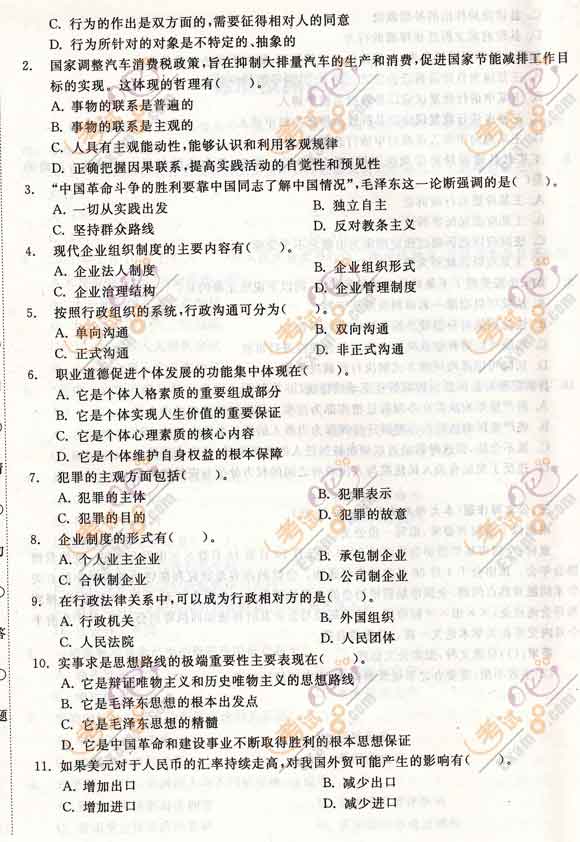 C. 行为的作出是双方面的,需要征得相对人的同意
D. 行为所针对的对象是不特定的、抽象的
2. 国家调整汽车消费税政策,旨在抑制大排量汽车的生产和消费,促进国家节能减排工作目
标的实现。这体现的哲理有( )。
A. 事物的联系是普遍的
B. 事物的联系是主观的
C. 人具有主观能动性,能够认识和利用客观规律
D. 正确把握因果联系,提高实践活动的自觉性和预见性
3. “中国革命斗争的胜利要靠中国同志了解中国情况”,毛泽东这一论断强调的是( )。
A. 一切从实践出发 B. 独立自主
C. 坚持群众路线 D. 反对教条主义
4. 现代企业组织制度的主要内容有( )。
A. 企业法人制度 B. 企业组织形式
C. 企业治理结构 D. 企业管理制度
5. 按照行政组织的系统,行政沟通可分为( )。
A. 单向沟通 B. 双向沟通
C. 正式沟通 D. 非正式沟通
6. 职业道德促进个体发展的功能集中体现在( )。
A. 它是个体人格素质的重要组成部分
B. 它是个体实现人生价值的重要保证
C. 它是个体心理素质的核心内容
D. 它是个体维护自身权益的根本保障
7. 犯罪的主观方面包括( )。
A. 犯罪的主体 B. 犯罪表示
C. 犯罪的目的 D. 犯罪的故意
8. 企业制度的形式有( )。
A. 个人业主企业 B. 承包制企业
C. 合伙制企业 D. 公司制企业
9. 在行政法律关系中,可以成为行政相对方的是( )。
A. 行政机关 B. 外国组织
C. 人民法院 D. 人民团体
10. 实事求是思想路线的极端重要性主要表现在( )。
A. 它是辩证唯物主义和历史唯物主义的思想路线
B. 它是毛泽东思想的根本出发点
C. 它是毛泽东思想的精髓
D. 它是中国革命和建设事业不断取得胜利的根本思想保证
11. 如果美元对于人民币的汇率持续走高,对我国外贸可能产生的影响有( )。
A. 增加出口 B. 减少出口
C. 增加进口 D. 减少进口